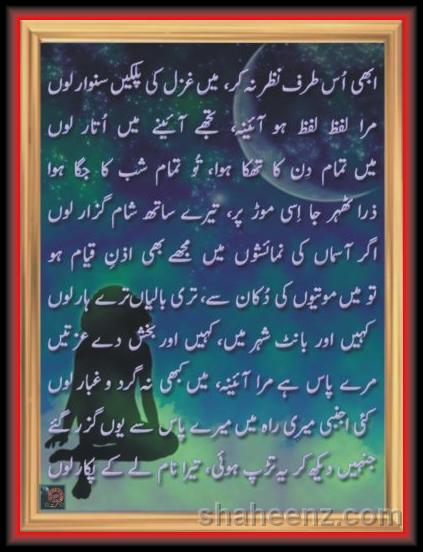 ابھی اُس طرف نظر نہ کر، میں غزل کی پلکیں سنوار لوں
مرا لفظ لفظ ہو آئینہ، تجھے آئینے میں اُتار لوں
میں تمام دن کا تھکا ہوا، تُو تمام شب کا جگا ہوا
ذرا ٹھہر جا اِسی موڑ پر، تیرے ساتھ شام گزار لوں
اگر آسماں کی نمائشوں میں مجھے بھی اذنِ قیام ہو
تو میں موتیوں کی دُکان سے، تری بالیاں ترے ہار لوں
کہیں اور بانٹ شہر میں، کہیں اور بخش دے عزتیں
مرے پاس ہے مرا آئینہ، میں کبھی نہ گرد و غبار لوں
کئی اجنبی میری راہ میں میرے پاس سے یوں گزر گئے
جنہیں دیکھ کر یہ تڑپ ہوئی، تیرا نام لے کے پکار لوں
shaheenz.com